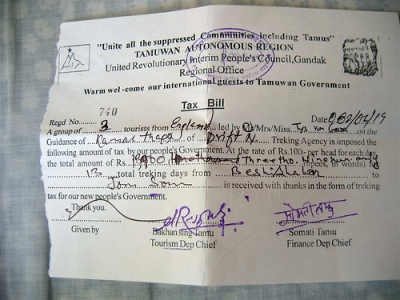 "Unite all the suppressed Communities including Tamus"
TAMUWAN AUTONOMOUS REGION
United Revolutionary Interim People's Council, Gandak
Regional Office
Warm wel-come our international guests to Tamuwan Government
Tax Bill
Regd No 740
Date
A group of 3 tourists from England led by Mr/Mrs/Miss
Guidance of of Treking Agency is imposed the
following amount of tax by our people's Government. At the rate of Rs.100- per head for each day
the total amount of Rs. rupees, in words)
13 total treking days from
Jom Som is received with thanks in the form of treking
tax for our new people's Government.
Thank you.
Given by
Bakhansing Tamu Somati Tamu
Tourism Dep Chief Finance Dep Chief